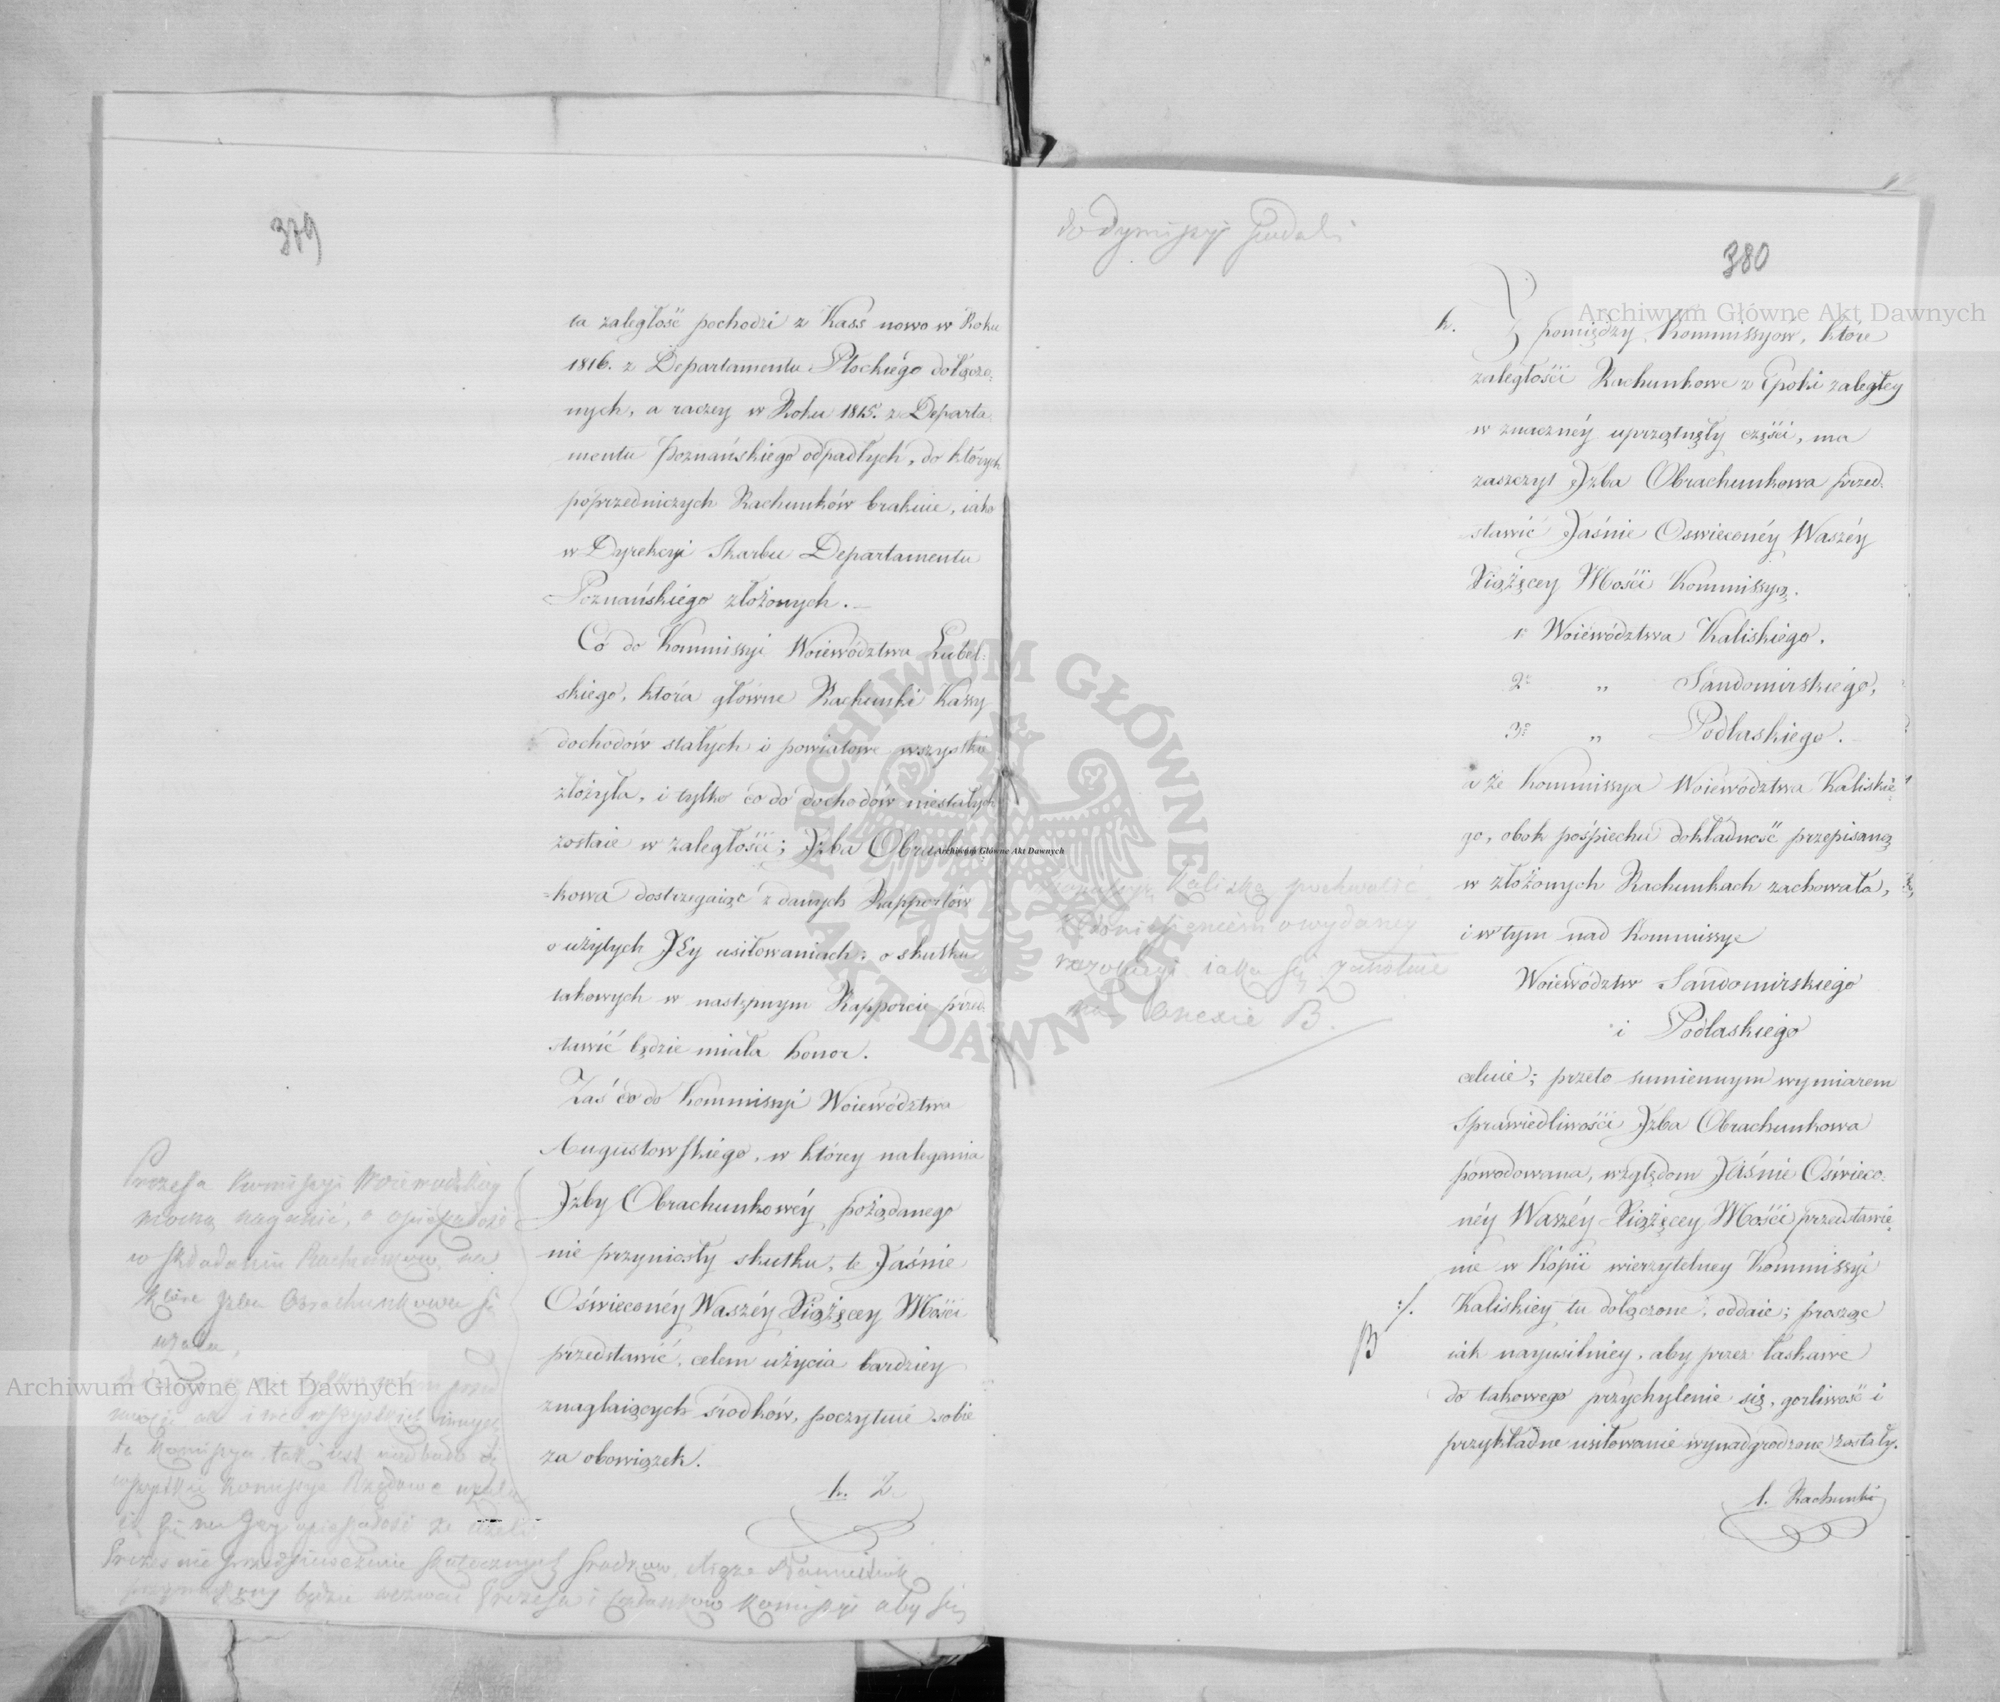 379
ta zaległość pochodzi z Kass nowo w Roku
1816. z Departamentu Płockiego dołączo=
nych, a raczey w Roku 1815. z Departa
mentu Poznańskiego odpadłych, do których
poprzedniczych Rachunków brakuie, iako
w Dyrekcyi Skarbu Departamentu
Poznańskiego złożonych.
Co do Kommissyi Woiewództwa Lubel=
skiego, która główne Rachunki Kassy
dochodów stałych i powiatowe wszystkie
złożyła, i tylko co do dochodów niestałych
zostaie w zaległości; Jzba Obrachun
=kowa dostrzegaiąc z danych Rapportów
o użytych Jéy usiłowaniach; o skutku
takowych w następnym Rapporcie przed
stawić będzie miała honor.
Zaś co do Kommissyi Woiewództwa
Augustowskiego, w którey nalegania
Jzby Obrachunkowéy pożądanego
nie przyniosły skutku, te Jaśnie
Oświeconéy Waszéy Xiążęcey Mości
przedstawić, celem użycia bardziey
znaglaiących środków, poczytuie sobie
za obowiązek.
h. Z
Prezesa Kommissyi Woiewodzkiey
mocno naganić, o opieszałość
w składaniu Rachunków, na
które Jzba Obrachunkowa się
użala,
ta Komissya tak iest
wszystkie Komissye Rządowe użala
ią się na Jey opieszałość że ieżeli
Prezes nie przedsięweźmie skutecznych środków, Xiąże Namiestnik
przymuszony będzie wezwać Prezesa i Członków Komissyi aby się
380
h. Z pomiędzy Kommissyow, które
zaległości Rachunkowe z Epoki zaległey
w znacznéy uprzątnęły części, ma
zaszczyt Jzba Obrachunkowa przed=
stawić Jaśnie Oswieconéy Waszéy
Xiążęcey Mości Kommissyą.
1o Woiewództwa Kaliskiego.
2o „ Sandomirskiego,
3o „ Podlaskiego.
a że Kommissya Woiewództwa Kaliskie
go, obok pośpiechu dokładność przepisaną
w złożonych Rachunkach zachowała,
i w tym nad Kommissye
Woiewództw Sandomirskiego
i Podlaskiego
celuie; przeto sumiennym wymiarem
Sprawiedliwości Jzba Obrachunkowa
powodowana, względom Jaśnie Oświeco=
néy Waszéy Xiążęcey Mości przedstawie
nie w Kopii wierzytelney Kommissyi
./. Kaliskiey tu dołączone, oddaie; prosząc
B iak nayusilniey, aby przez łaskawe
do takowego przychylenie się, gorliwość i
przykładne usiłowanie wynadgrodzone zostały.
1. Rachunki
Kaliską pochwalić
z doniesieniem o wydaney
rezolucyi iaka się znaiduie
na Anexie B.
Archiwum Główne Akt Dawnych
Archiwum Główne Akt Dawnych
Archiwum Główne Akt Dawnych
ARCHIWUM GŁÓWNE AKT DAWNYCH